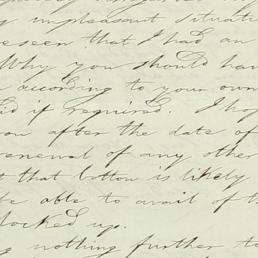 unpleasant situati
reseen that I had an
Why you should hav
according to your own
did if required. I ho
on after the date of
renewal of any other
t that bottom is likely
be able to avail of th
locked up.
nothing further to